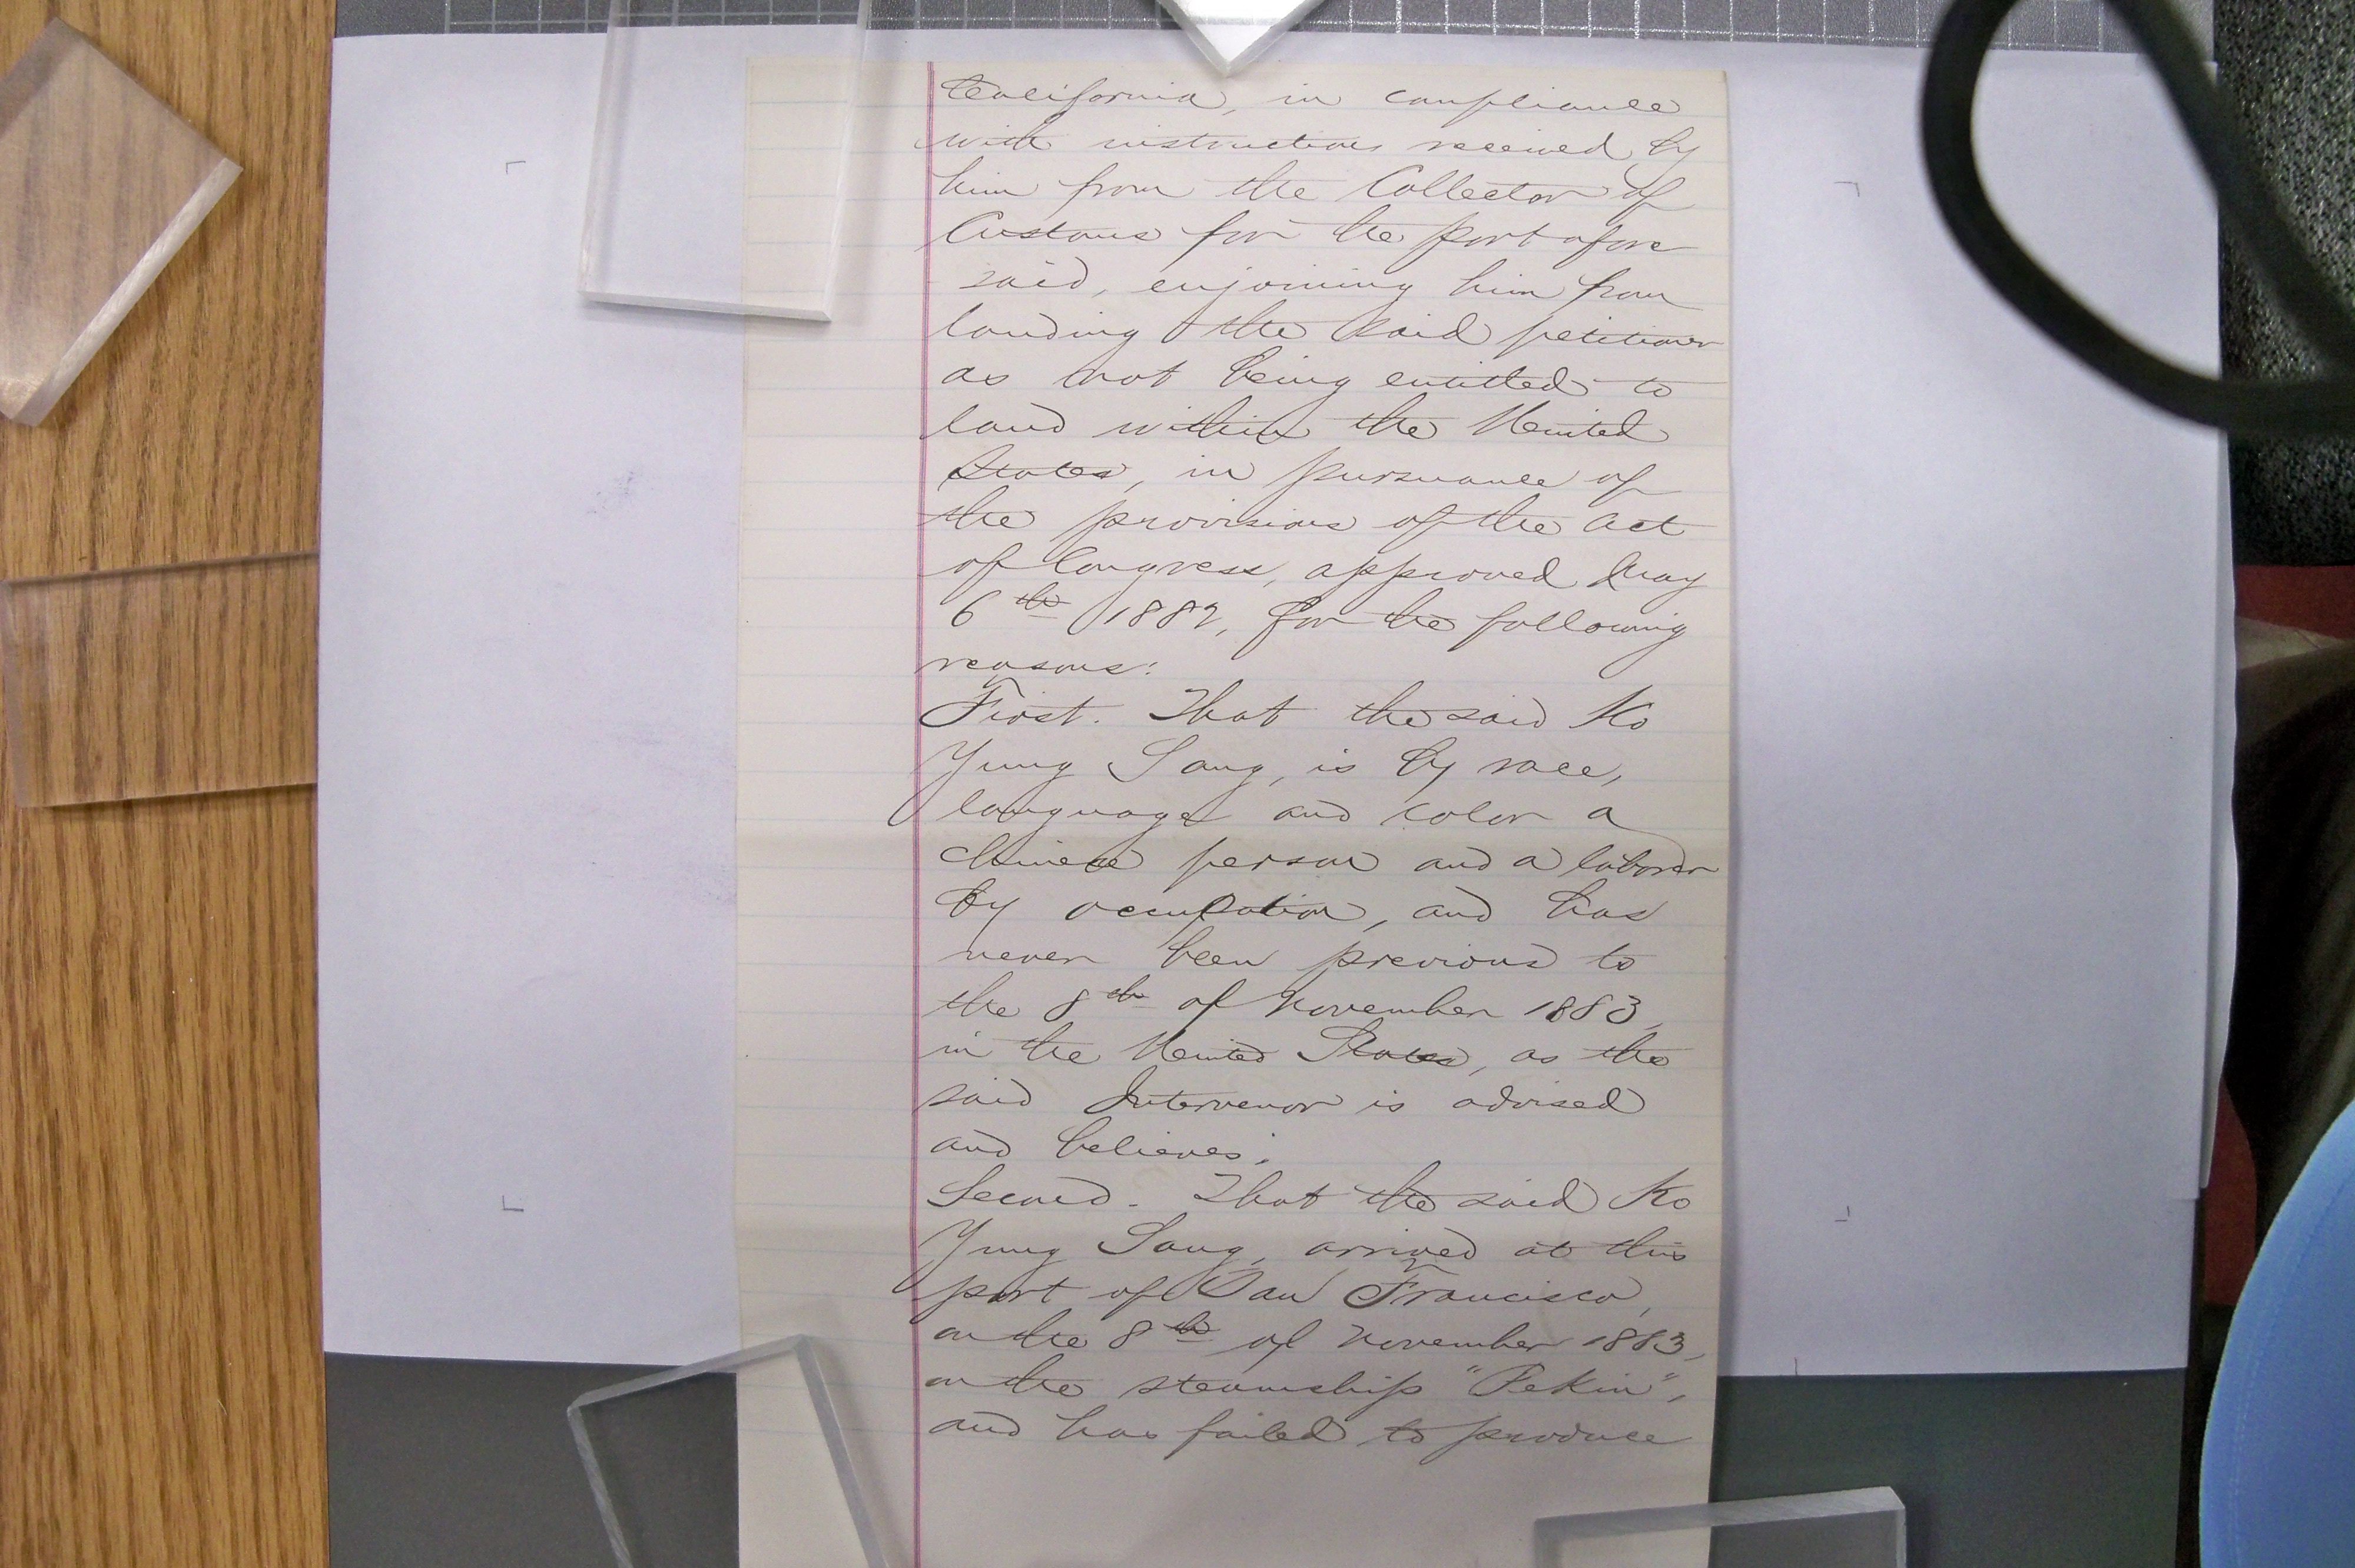 California, in compliance
with instructions received by
him from the Collector of
Customs for the port afore
said, enjoining him from
landing the said petitioner
as not being entitled to
land within the United
States, in pursuance of
the provisions of the act
of Congress, approved May
6th 1882, for the following
reasons:
First. That the said Ko
Yung Sang, is by race,
language and color a
chinese person and a laborer
by occupation, and has
never been previous to
the 8th of November 1883,
in the United States, as the
said Intervenor is advised
and believes;
Second. That the said Ko
Yung Sang, arrived at this
port of San Francisco,
on the 8th of November 1883,
on the steamship "Pekin",
and has failed to produce